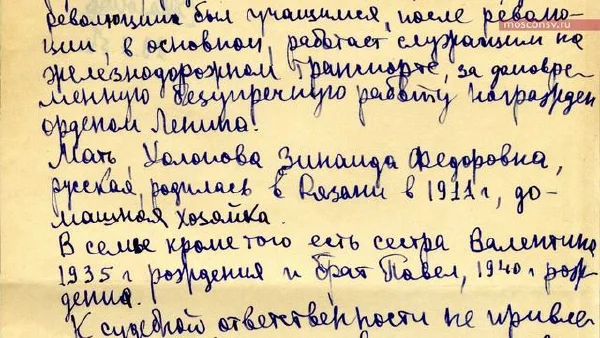 революции был учащимся, после револю-
ции, в основном, работает служащим на
железнодорожном транспорте, за долговре-
менную безупречную работу награжден
орденом Ленина.
Мать, Зинаида Федоровна,
русская, родилась в Рязани в 1911 г, до-
машняя хозяйка.
В семье кроме того есть сестра Валентина
1935 г рождения и брат Павел, 1940 г. рож-
дения.
К судебной ответственности не привле-
mosconsv.ru